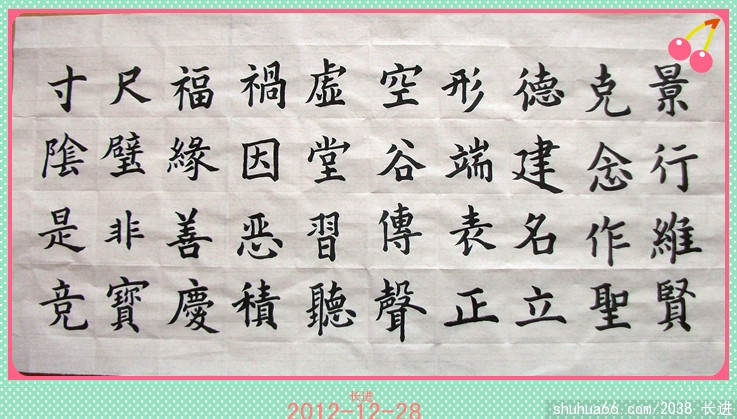 景行維賢
克念作聖
德建名立
形端表正
空谷傳聲
虛堂習聽
禍因惡積
福緣善慶
尺璧非寶
寸陰是竞
长进
2012-12-28
shuhua66.com/2038 长进